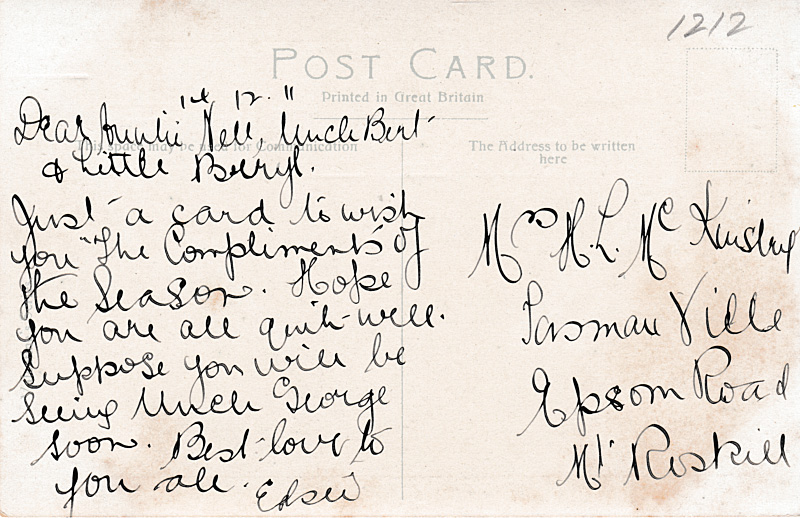 1212
POST CARD.
Printed in Great Britain
This space may be used for Communication
The Address to be written
here
Dear Auntie Nell, Uncle Bert
& Little Beryl.
Just a card to wish
you "The Compliments of
the Season. Hope
you are all quite well.
Suppose you will be
seeing Uncle George
soon. Best love to
you all.
Mrs H. L. McKinstry
Ville
Epsom Road
Mt Roskill